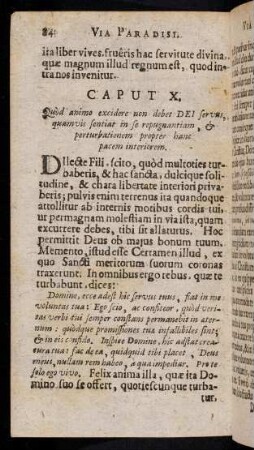 84 VIA PARADISI.
ita liber vives. fruêris hac servitute divina,
que magnum illud regnum est, quod in-
tra nos invenitur.
CAPUT X.
Quòd animo excidere non debet DEI servus,
quamvis sentiat in se repugnantiam, &
perturbationem propter hanc
pacem interiorem.
DIlecte Fili, scito, quòd multoties tur-
baberis, & hac sancta, dulcique soli-
tudine, & chara libertate interiori priva-
beris; pulvis enim terrenus ita quandoque
attollitur ab internis motibus cordis tui,
ut per magnam molestiam in via ista, quam
excurrere debes, tibi sit allaturus. Hoc
permittit Deus ob majus bonum tuum.
Memento, istud esse Certamen illud, ex
quo Sancti meritorum suorum coronas
traxerunt. In omnibus ergo rebus, quæ te
turbabunt, dices:
Domine, ecce adest hic servus tuus, fiat in me
voluntas tua: Ego scio, ac confiteor, quòd veri-
tas verbi tui semper constans permanebit in æter-
num: quòdque promissiones tuæ infallibiles sint;
& in eis confido. Inspice Domine, hic adstat crea-
tura tua: fac de ea, quidquid tibi placet, Deus
meus, nullam rem habeo, à qua impediar. Pro te
solo ego vivo. Felix anima illa, quæ ita Do-
mino suo se offert, quotiescunque turba-
tur,